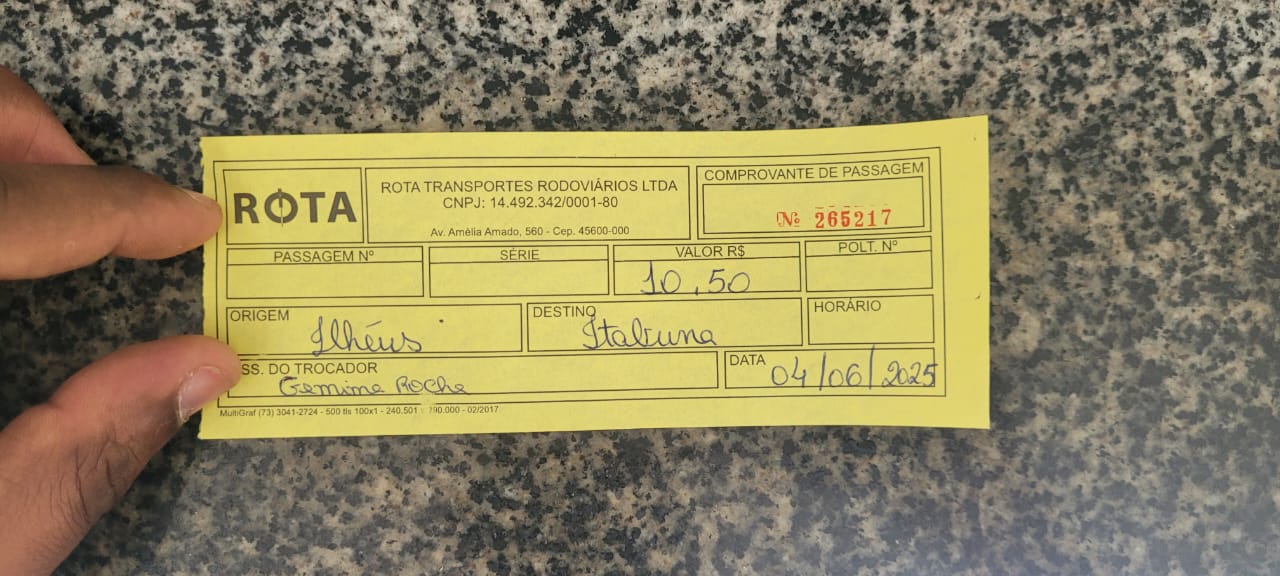 ROTA
ROTA TRANSPORTES RODOVIÁRIOS LTDA
CNPJ: 14.492.342/0001-80
Av. Amélia Amado, 560 - Cep. 45600-000
COMPROVANTE DE PASSAGEM
Nº 265217
PASSAGEM Nº
SÉRIE
VALOR R$
10,50
POLT. Nº
ORIGEM
Ilhéus
DESTINO
Itabuna
HORÁRIO
SS. DO TROCADOR
Gemima Rocha
DATA
04/06/2025
MultiGraf (73) 3041-2724 - 500 tls 100x1 - 240.501 790.000 - 02/2017